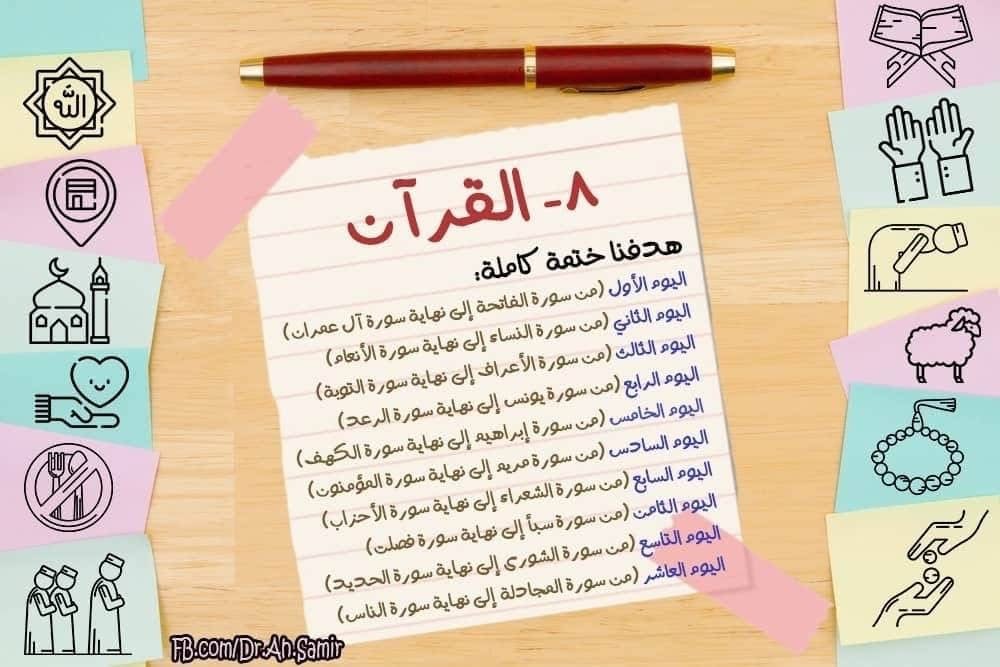 ٨- القرآن
هدفنا ختمة كاملة:
اليوم الأول (من سورة الفاتحة إلى نهاية سورة آل عمران)
اليوم الثاني (من سورة النساء إلى نهاية سورة الأنعام)
اليوم الثالث (من سورة الأعراف إلى نهاية سورة التوبة)
اليوم الرابع (من سورة يونس إلى نهاية سورة الرعد)
اليوم الخامس (من سورة إبراهيم إلى نهاية سورة الكهف)
اليوم السادس (من سورة مريم إلى نهاية سورة المؤمنون)
اليوم السابع (من سورة الشعراء إلى نهاية سورة الأحزاب)
اليوم الثامن (من سورة سبأ إلى نهاية سورة فصلت)
اليوم التاسع (من سورة الشورى إلى نهاية سورة الحديد)
اليوم العاشر (من سورة المجادلة إلى نهاية سورة الناس)
الله
FB.com/Dr.Ah.Samir